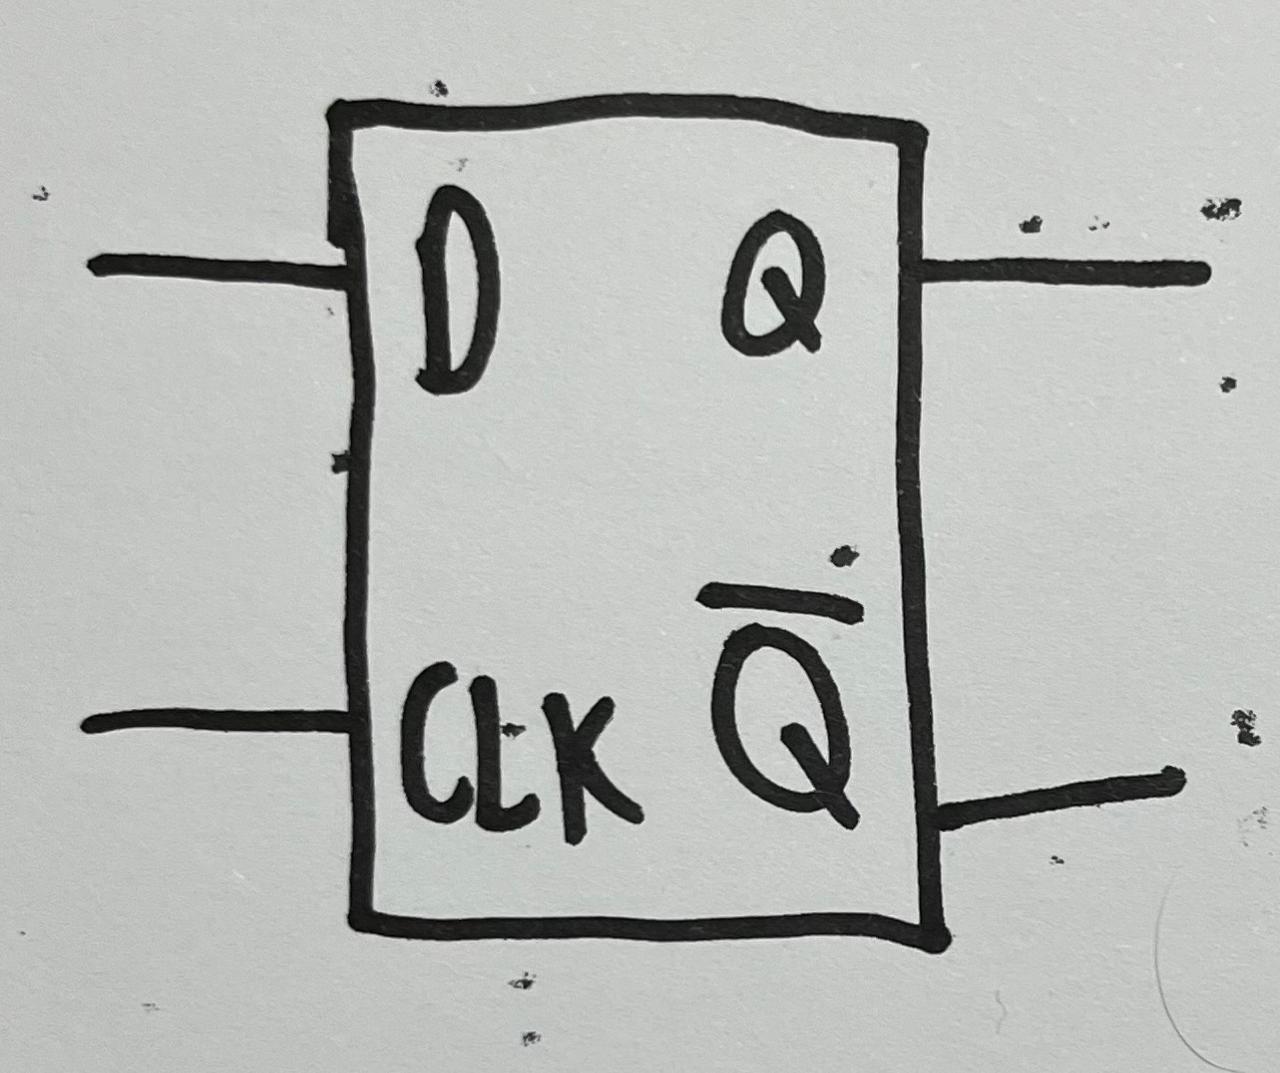 D Q
CLK Q̅